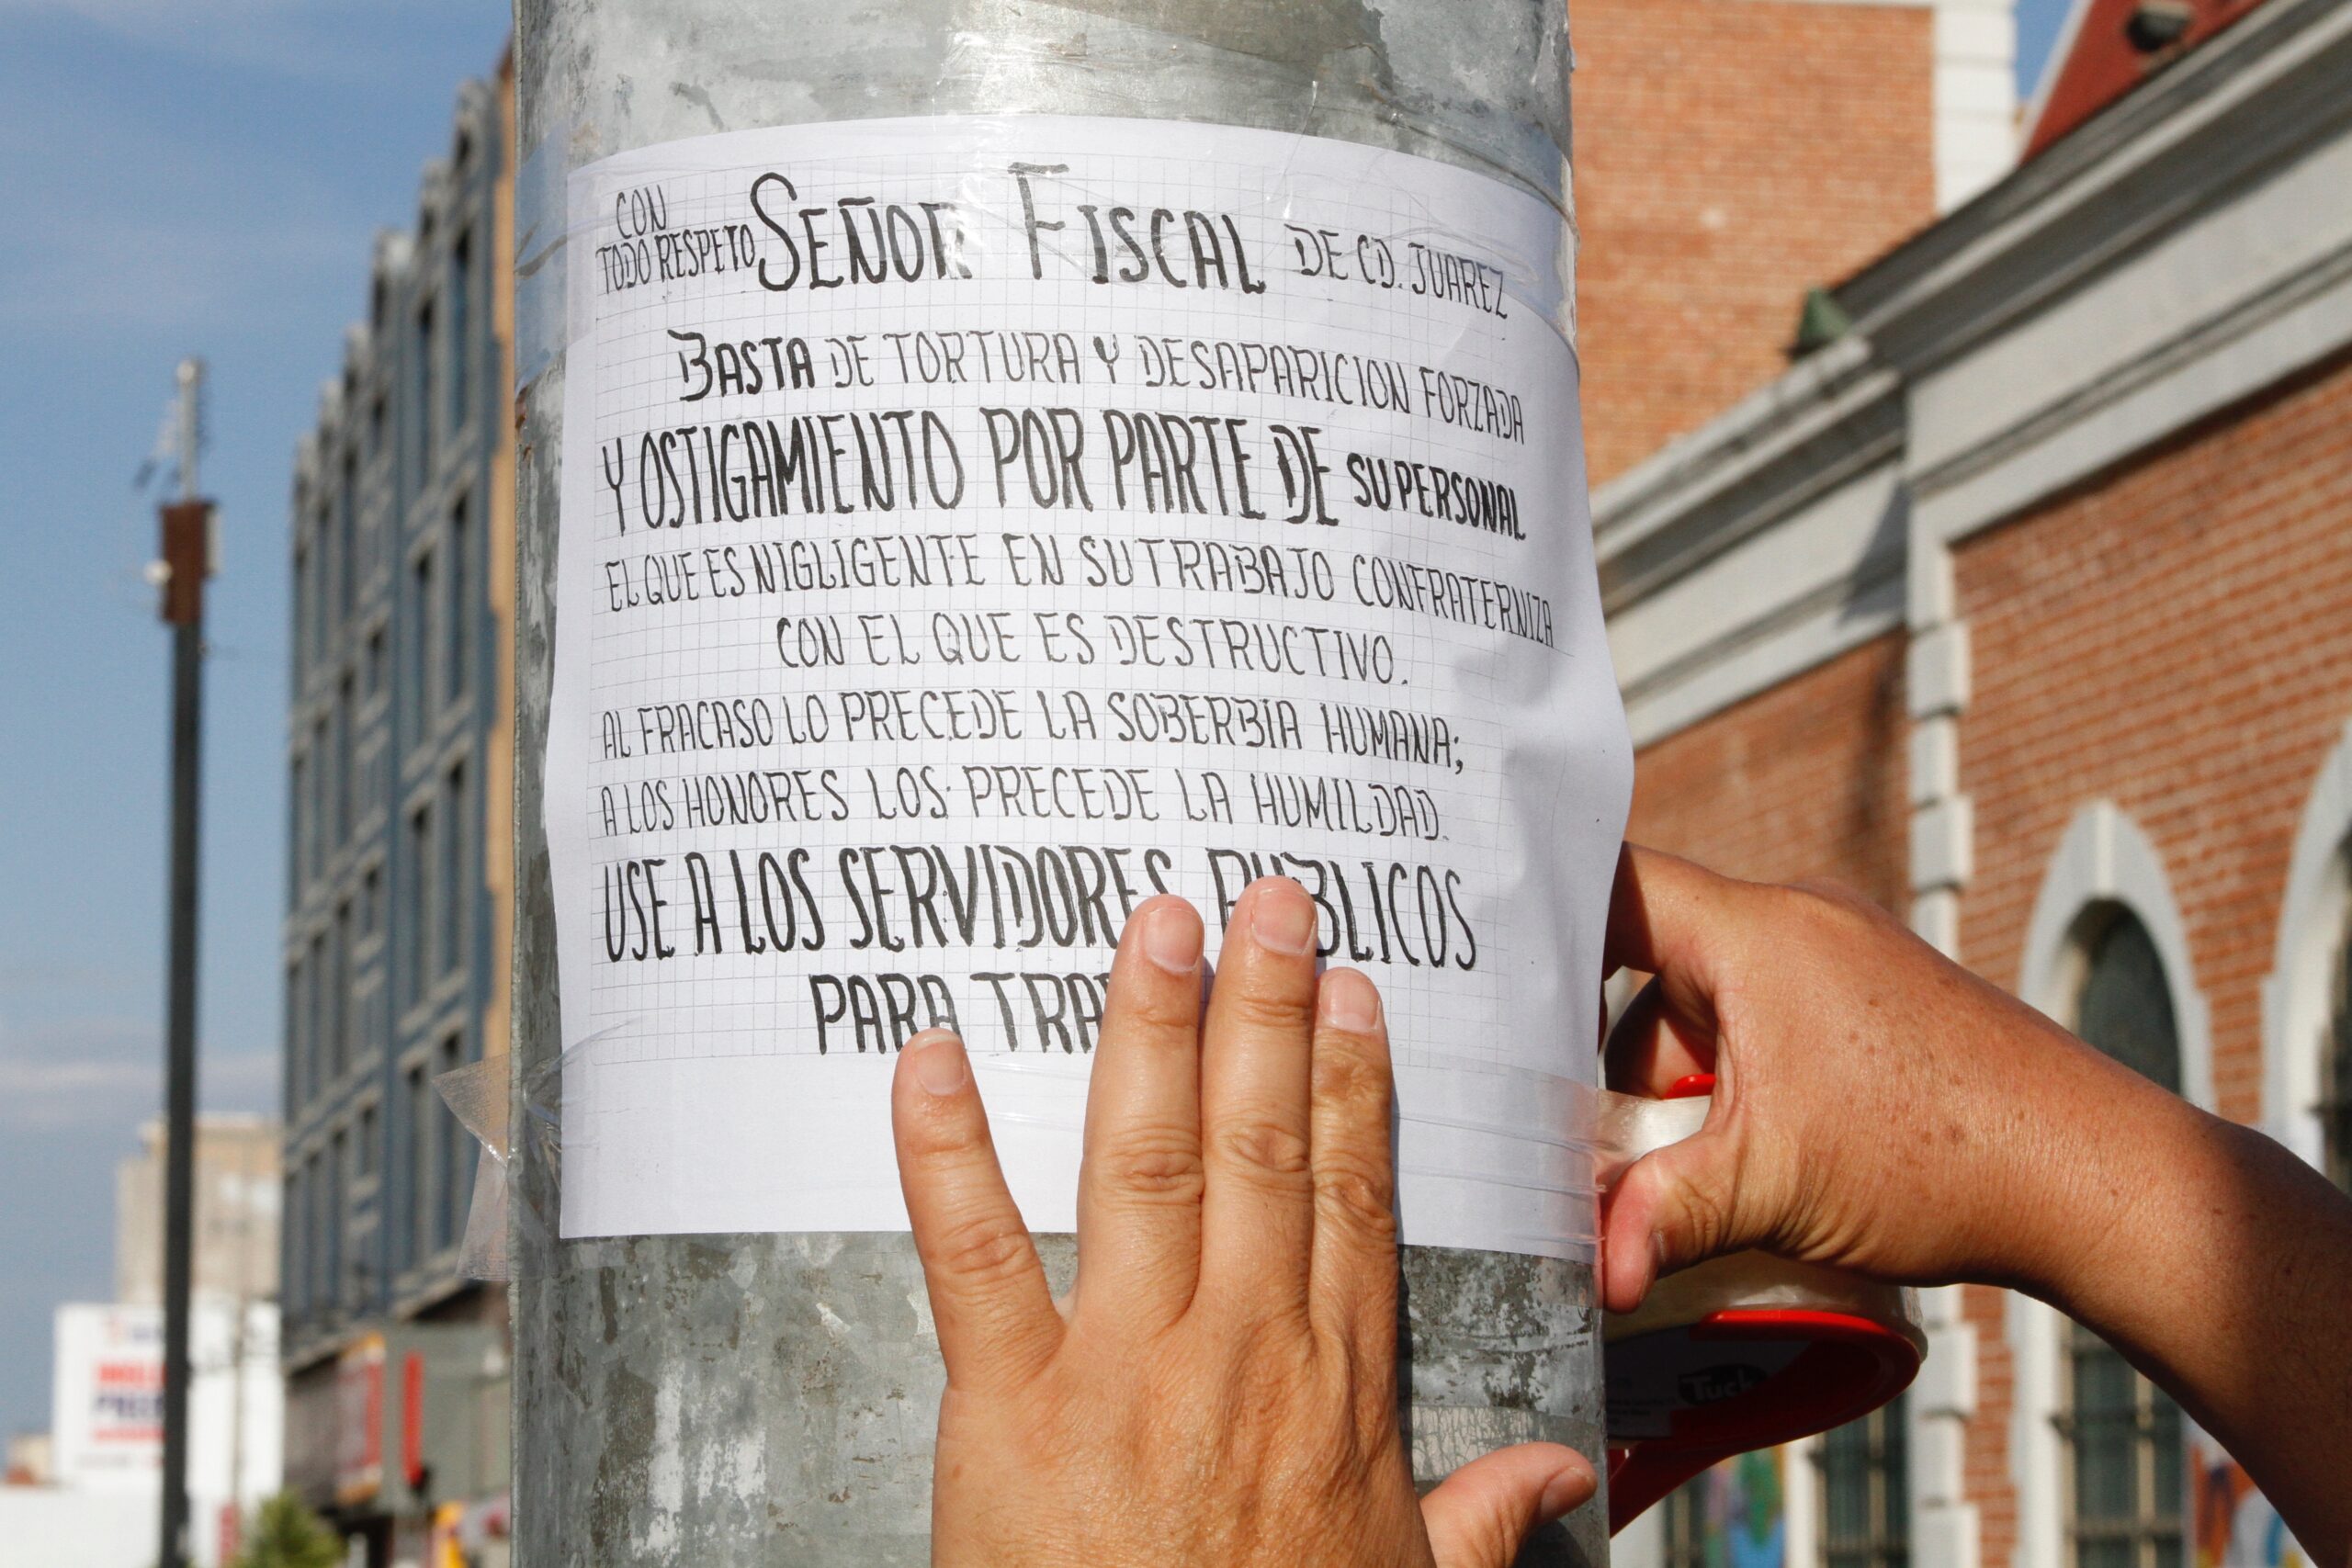 CON
TODO RESPETO SEÑOR FISCAL DE CD. JUAREZ
BASTA DE TORTURA Y DESAPARICION FORZADA
Y OSTIGAMIENTO POR PARTE DE SU PERSONAL
EL QUE ES NIGLIGENTE EN SU TRABAJO CONFRATERNIZA
CON EL QUE ES DESTRUCTIVO.
AL FRACASO LO PRECEDE LA SOBERBIA HUMANA;
A LOS HONORES LOS PRECEDE LA HUMILDAD.
USE A LOS SERVIDORES PUBLICOS
PARA
Tuck